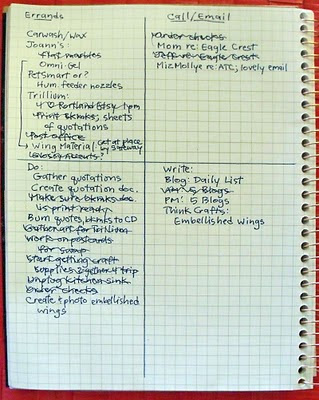 Errands
Carwash/Wax
Joann's:
flat marbles
Omni Gel
PetSmart or?
Hum. feeder nozzles
Trillium:
4 ♡ Portland Etsy 1pm
Print bkmks, sheets
of quotations
Post office
Wing Material: Get at place
by Safeway
Call/Email
Order checks
Mom re: Eagle Crest
Jeff re: Eagle Crest
MizMollye re: ATC; lovely email
Do:
Gather quotations
Create quotation doc.
Make sure bkmks doc
is print ready
Burn quotes, bkmks to CD
Gather art for Trillium
Work on postcards
for swap
Start getting craft
supplies together 4 trip
Unplug kitchen sink
Order checks
Create & photo embellished
wings
Write:
Blog: Daily List
AM: 5 Blogs
PM: 5 Blogs
Think Crafts:
Embellished Wings